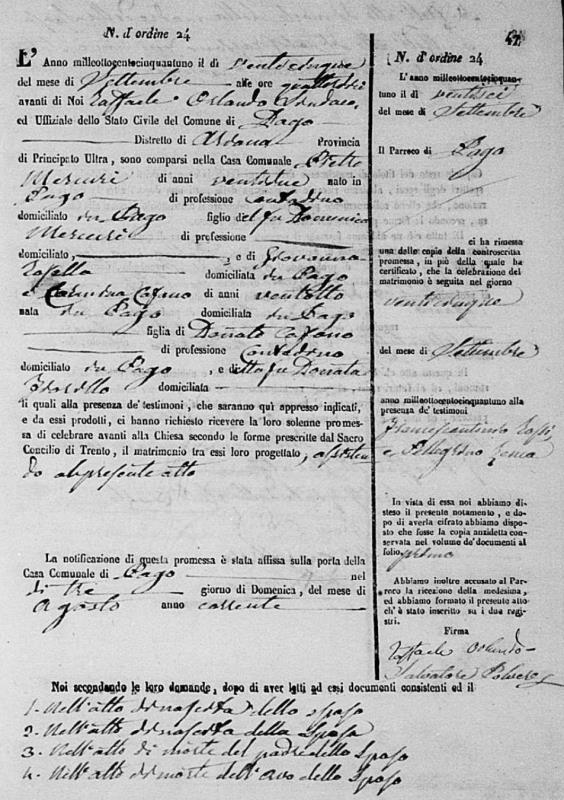 N. d'ordine 24
L'Anno millottocentocinquantuno il dì venticinque
del mese di Settembre alle ore quattordici
avanti di Noi Raffaele Orlando Sindaco,
ed Uffiziale dello Stato Civile del Comune di Pago
Distretto di Provincia
di Principato Ultra, sono comparsi nella Casa Comunale Pietro
Mercuri di anni ventidue nato in
Pago di professione contadino
domiciliato in Pago figlio del fu Domenico
Mercuri di professione
domiciliato, , e di Giovanna
domiciliata in Pago
e Cafano di anni ventotto
nata in Pago domiciliata in Pago
figlia di Donato Cafano
di professione Contadino
domiciliato in Pago , e della fu Donata
domiciliata
li quali alla presenza de' testimoni, che saranno qui appresso indicati,
e da essi prodotti, ci hanno richiesto ricevere la loro solenne promes-
sa di celebrare avanti alla Chiesa secondo le forme prescritte dal Sacro
Concilio di Trento, il matrimonio tra essi loro progettato, assisten
do al presente atto
La notificazione di questa promessa è stata affissa sulla porta della
Casa Comunale di Pago nel
dì tre giorno di Domenica, del mese di
Agosto anno corrente
N. d'ordine 24
L'anno milleottocentocinquan-
tuno il dì ventisei
del mese di Settembre
Il Parroco di Pago
ci ha rimessa
una delle copie della controscritta
promessa, in piè della quale ha
certificato, che la celebrazione del
matrimonio è seguita nel giorno
venticinque
del mese di Settembre
anno millottocentocinquantuno alla
presenza de' testimoni
Francescantonio
e Pellegrino
In vista di essa noi abbiamo di-
steso il presente notamento, e do-
po di averla cifrato abbiamo dispo-
sto che fosse la copia anzidetta con-
servata nel volume de' documenti al
folio primo
Abbiamo inoltre accusato al Par-
roco la ricezione della medesima,
ed abbiamo formato il presente atto
ch'è stato inscritto su i due regi-
stri.
Firma
Raffaele Orlando
Salvatore
Noi secondando le loro domande, dopo di aver letti ad essi documenti consistenti ed il
1. Nell'atto di nascita dello sposo
2. Nell'atto di nascita della sposa
3. Nell'atto di morte del padre dello sposo
4. Nell'atto di morte dell'avo dello sposo